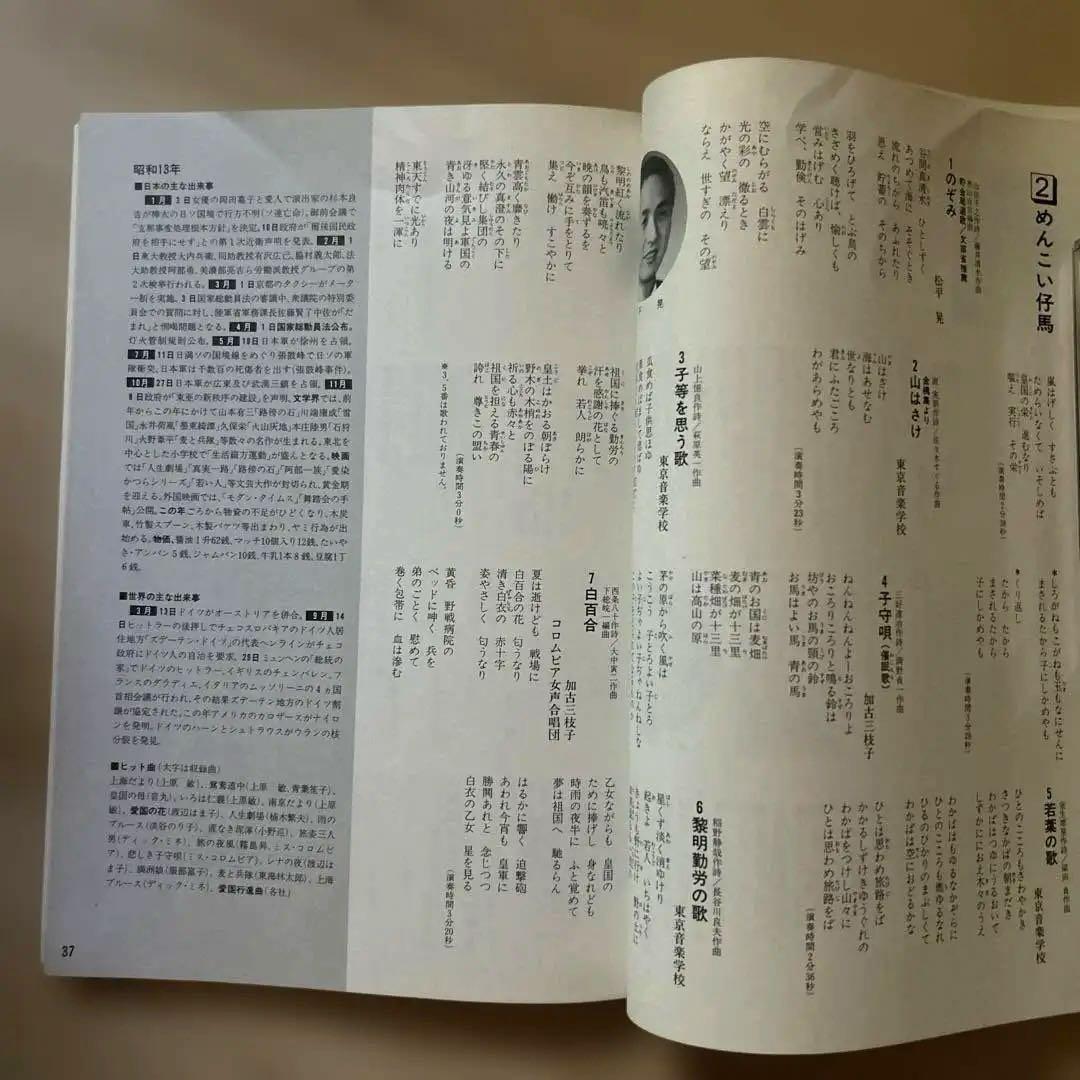 2 めんこい仔馬
1 のぞみ
松平 晃
谷間の真清水 ひとしずく
あつめて海に そそぐとき
流れのちから あふれたり
思え 貯蓄の そのちから
羽をひろげて とぶ鳥の
ささめく聴けば 愉しくも
営みはげむ 心あり
学べ、勤倹 そのはげみ
空にむらがる 白雲に
光の彩の 徹るとき
かがやく望 漂えり
ならえ 世すぎの その望
嵐はげしく すさぶとも
ためらいなくて いそしめば
皇国の栄 進むなり
颯え 実行 その栄
2 山はさけ
金槐集より
東京音楽学校
山はさけ
海はあせなむ
世なりとも
君にふたごころ
わがあらめやも
(演奏時間3分23秒)
3 子等を思う歌
山上憶良作詩/萩原英一作曲
東京音楽学校
瓜食めば子供思ほゆ
*しろがねもこがね玉もなにせに
まされるたから子にしかめやも
*くり返し
たから たから
まされるたから
子にしかめやも
4 子守唄(催眠歌)
加古三枝子
ねんねんねんよーおころりよ
おころりころりと鳴る鈴は
坊やのお馬の頸の鈴
お馬はよい馬 青の馬
青のお国は麦畑
麦の畑が十三里
菜種畑が十三里
山は高山の原
茅の原から吹く風は
こうこう 子とろよい子とろ
5 若葉の歌
東京音楽学校
ひとのこころもさわやかき
さつきなかばの朝まだき
わかばはつゆにうるおいて
しずかににおえ木々のうえ
わかばはもゆるなかぞらに
ひとのこころも燃ゆるなれ
ひるのひかりのまぶしくて
わかばは空におどるかな
ひとは思わめ旅路をば
わかかるしずけきゆうぐれの
わかばをつけし山々に
ひとは思わめ旅路をば
(演奏時間2分36秒)
6 黎明勤労の歌
稲野静哉作詩/長谷川良夫作曲
東京音楽学校
星くず淡く消ゆけり
起きよ 若人 いちはやく
黎明紅く流れたり
鳥も汽笛も暁々と
暁の韻を奏ずるを
今ぞ互みに手をとりて
集え 働け すこやかに
青雲高く靡きたり
永久の真澄のその下に
堅く結びし集団の
冴ゆる意気見よ軍国の
青き山河の夜は明ける
東天すでに光あり
精神肉体を一渾に
祖国に捧ぐ勤労の
汗を感謝の花として
挙れ 若人 朗らかに
皇土はかおる朝ぼらけ
野木の木梢をのぼる陽に
祈る心も赤々と
祖国を担える青春の
誇れ 尊きこの盟い
*3、5番は歌われておりません。
(演奏時間3分0秒)
7 白百合
西条八十作詩/大中寅二作曲
下総皖一編曲
加古三枝子
コロムビア女声合唱団
夏は逝けども 戦場に
白百合の花 匂うなり
清き白衣の 赤十字
姿やさしく 匂うなり
黄昏 野戦病院の
ベッドに呻く 兵を
弟のごとく 慰めて
巻く包帯に 血は滲む
乙女ながらも 皇国の
ために捧げし 身なれども
時雨の夜半に ふと覚めて
夢は祖国へ 馳るらん
はるかに響く 迫撃砲
あわれ今宵も 皇軍に
勝鬨あれと 念じつつ
白衣の乙女 星を見る
(演奏時間3分20秒)
昭和13年
■日本の主な出来事
1月 3日女優の岡田嘉子と愛人で演出家の杉本良
吉が樺太の日ソ国境で行方不明(ソ連亡命)。御前会議で
「支那事変処理根本方針」を決定。16日政府が「爾後国民政
府を相手にせず」との第1次近衛声明を発表。2月 1
日東大教授大内兵衛、同助教授有沢広巳、脇村義太郎、法
大助教授阿部勇、美濃部亮吉ら労働派教授グループの第
2次検挙行われる。3月 1日京都のタクシーがメータ
ー制を実施。3日国家総動員法の審議中、衆議院の特別委
員会での質問に対し、陸軍省軍務課長佐藤賢了中佐が「だ
まれ」と恫喝問題となる。4月 1日国家総動員法公布。
灯火管制規則公布。5月 19日日本軍が徐州を占領。
7月 11日日満ソの国境線をめぐり張鼓峰で日ソの軍
隊衝突。日本軍は千数百の死傷者を出す(張鼓峰事件)。
10月 27日日本軍が広東及び武漢三鎮を占領。11月
8日政府が「東亜の新秩序の建設」を声明。文学界では、前
年からこの年にかけて山本有三「路傍の石」川端康成「雪
国」永井荷風「墨東綺譚」久保栄「火山灰地」本庄陸男「石狩
川」火野葦平「麦と兵隊」等数々の名作が生まれる。東北を
中心とした小学校で「生活綴方運動」が盛んとなる。映画
では「人生劇場」「真実一路」「路傍の石」「阿部一族」「愛染
かつらシリーズ」「若い人」等文芸大作が封切られ、黄金期
を迎える。外国映画では、「モダン・タイムス」「舞踏会の手
帖」公開。この年ごろから物資の不足がひどくなり、木炭
車、竹製スプーン、木製バケツ等出まわり、ヤミ行為が出
始める。物価、醤油1升62銭、マッチ10個入り12銭、たいや
き・アンパン5銭、ジャムパン10銭、牛乳1本8銭、豆腐1丁
6銭。
■世界の主な出来事
3月 13日ドイツがオーストリアを併合。9月 14
日ヒットラーの後押しでチェコスロバキアのドイツ人居
住地方「ズデーテン・ドイツ」の代表ヘンラインがチェコ
政府にドイツ人の自治を要求。29日ミュンヘンの「総統の
家」でドイツのヒットラー、イギリスのチェンバレン、フ
ランスのダラディエ、イタリアのムッソリーニの4カ国
首相会議が行われ、その結果ズデーテン地方のドイツ割
譲が協定された。この年アメリカのカロザースがナイロ
ンを発明。ドイツのハーンとシュトラウスがウランの核
分裂を発見。
■ヒット曲(太字は収録曲)
上海だより(上原 敏)、鴛鴦道中(上原 敏、青葉笙子)、
皇国の母(音丸)、いろは仁義(上原敏)、南京だより(上原
敏)、愛国の花(渡辺はま子)、人生劇場(楠木繁夫)、雨の
ブルース(淡谷のり子)、涯なき泥濘(小野巡)、旅姿三人
男(ディック・ミネ)、旅の夜風(霧島昇、ミス・コロムビ
ア)、悲しき子守唄(ミス・コロムビア)、シナの夜(渡辺は
ま子)、満洲娘(服部富子)、麦と兵隊(東海林太郎)、上海
ブルース(ディック・ミネ)、愛国行進曲(各社)
37